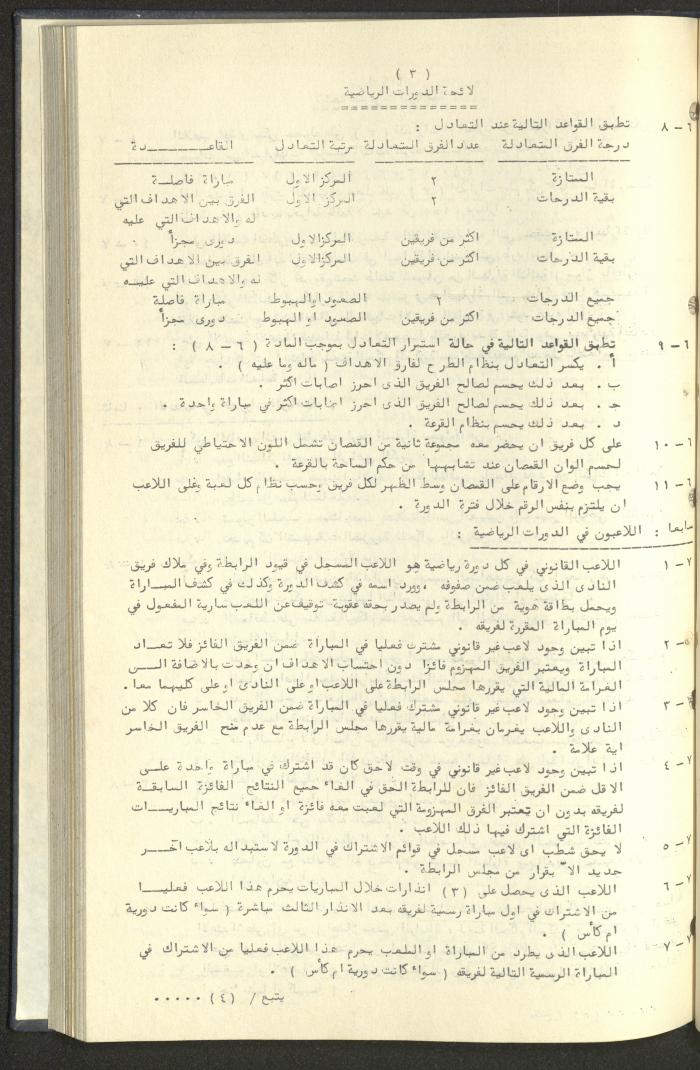 ( ٣ )
لائحة الدورات الرياضية
٦ – ٨ تطبق القواعد التالية عند التعادل :
درجة الفرق المتعادلة عدد الفرق المتعادلة مرتبة التعادل القاعــــــدة
الممتازة ٢ المركز الاول مباراة فاصلـة
بقية الدرجات ٢ المركز الاول الفرق بين الاهداف التي
له والاهداف التي عليه
الممتازة اكثر من فريقين المركزالاول دورى مجزأ
بقية الدرجات اكثر من فريقين المركزالاول الفرق بين الاهداف التي
له والاهداف التي عليـه
جميع الدرجات ٢ الصعود اوالهبوط مباراة فاصلة
جميع الدرجات اكثر من فريقين الصعود او الهبوط دورى مجزأ
٦ – ٩ تطبق القواعد التالية في حالة استمرار التعادل بموجب المادة ( ٦ – ٨ ) :
أ . يكسر التعادل بنظام الطرح لفارق الاهداف ( ماله وما عليه ) .
ب . بعد ذلك يحسم لصالح الفريق الذى احرز اصابات اكثر .
جـ . بعد ذلك يحسم لصالح الفريق الذى احرز اصابات اكثر في مباراة واحدة .
د . بعد ذلك يحسم بنظام القرعة .
٦ – ١٠ على كل فريق ان يحضر معه مجموعة ثانية من القمصان تشمل اللون الاحتياطي للفريق
لحسم الوان القمصان عند تشابهها من حكم الساحة بالقرعة .
٦ – ١١ يجب وضع الارقام على القمصان وسط الظهر لكل فريق وحسب نظام كل لعبة وعلى اللاعب
ان يلتزم بنفس الرقم خلال فترة الدورة .
سابعا : اللاعبون في الدورات الرياضية :
٧ – ١ اللاعب القانوني في كل دورة رياضية هو اللاعب المسجل في قيود الرابطة وفي ملاك فريق
النادى الذى يلعب ضمن صفوفه ، وورد اسمه في كشف الدورة وكذلك في كشف المبـاراة
ويحمل بطاقة هوية من الرابطة ولم يصدر بحقه عقوبة توقيف عن اللعب سارية المفعول في
يوم المباراة المقررة لفريقه .
٧ – ٢ اذا تبين وجود لاعب غير قانوني مشترك فعليا في المباراة ضمن الفريق الفائز فلا تعــاد
المباراة ويعتبر الفريق المهزوم فائزا دون احتساب الاهداف ان وجدت بالاضافة الــى
الغرامة المالية التي يقررها مجلس الرابطة على اللاعب او على النادى او على كليهما معا .
٧ – ٣ اذا تبين وجود لاعب غير قانوني مشترك فعليا في المباراة ضمن الفريق الخاسر فان كلا من
النادى واللاعب يغرمان بغرامة مالية يقررها مجلس الرابطة مع عدم منح الفريق الخاسر
اية علامة .
٧ – ٤ اذا تبين وجود لاعب غير قانوني في وقت لاحق كان قد اشترك في مباراة واحدة علــى
الاقل ضمن الفريق الفائز فان للرابطة الحق في الغاء جميع النتائج الفائزة السابقـة
لفريقه بدون ان تعتبر الفرق المهزومة التي لعبت معه فائزة او الغاء نتائج المباريــات
الفائزة التي اشترك فيها ذلك اللاعب .
٧ – ٥ لا يحق شطب اى لاعب مسجل في قوائم الاشتراك في الدورة لاستبداله بلاعب آخــر
جديد الا بقرار من مجلس الرابطة .
٧ – ٦ اللاعب الذى يحصل على ( ٣ ) انذارات خلال المباريات يحرم هذا اللاعب فعليــا
من الاشتراك في اول مباراة رسمية لفريقه بعد الانذار الثالث مباشرة ( سواء كانت دورية
ام كأس ) .
٧ – ٧ اللاعب الذى يطرد من المباراة او الملعب يحرم هذا اللاعب فعليا من الاشتراك في
المباراة الرسمية التالية لفريقه ( سواء كانت دورية ام كأس ) .
يتبع / ( ٤ ) ٠٠٠٠٠